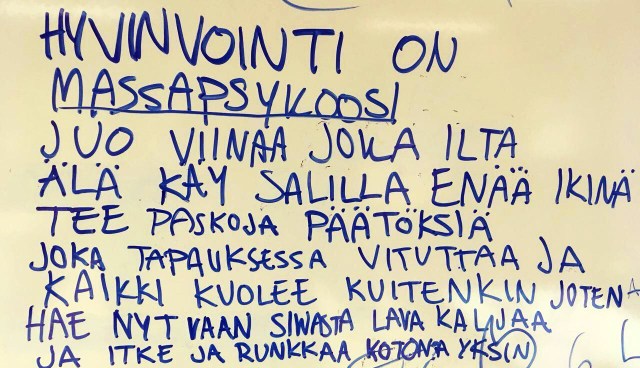 HYVINVOINTI ON
MASSAPSYKOOSI
JUO VIINAA JOKA ILTA
ÄLÄ KÄY SALILLA ENÄÄ IKINÄ
TEE PASKOJA PÄÄTÖKSIÄ
JOKA TAPAUKSESSA VITUTTAA JA
KAIKKI KUOLEE KUITENKIN JOTEN
HAE NYT VAAN SIWASTA LAVA KALJAA
JA ITKE JA RUNKKAA KOTONA YKSIN